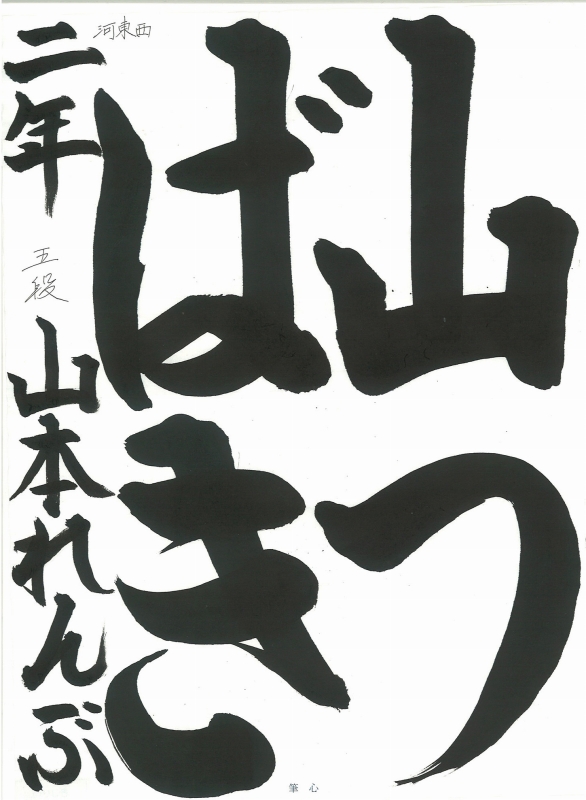 山つ
ばき
河東西
二年 五段 山本れんぶ
心筆